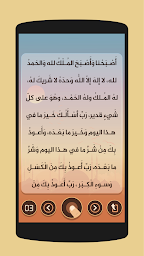 أَصْبَحْنَا وَأَصْبَحَ المُلْكُ لله وَالحَمدُ
لله، لا إله إلّا اللهُ وَحدَهُ لا شريكَ لهُ،
لهُ المُلكُ ولهُ الحَمْد، وهُوَ على كلّ
شيءٍ قدير، رَبِّ أسْألُكَ خَيرَ ما في
هذا اليوم وَخَيرَ ما بَعْدَه، وَأعوذُ
بكَ مِنْ شَرِّ ما في هذا اليوم وَشَرِّ
ما بَعْدَه، رَبِّ أعوذُ بكَ مِنَ الكَسَل
وَسوءِ الكِبَر، رَبِّ أعوذُ بكَ مِنْ
03